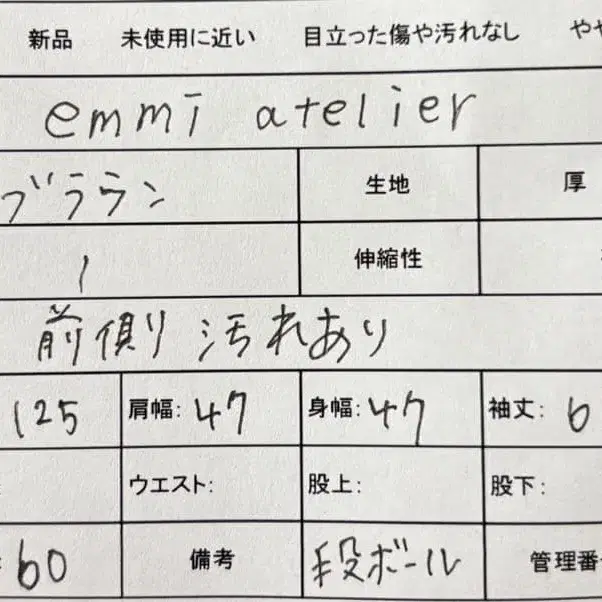 新品 未使用に近い 目立った傷や汚れなし やや
emmi atelier
ブラウン 生地 厚
1 伸縮性
前側り汚れあり
125 肩幅: 47 身幅: 47 袖丈: 6
ウエスト: 股上: 股下:
60 備考 段ボール 管理番